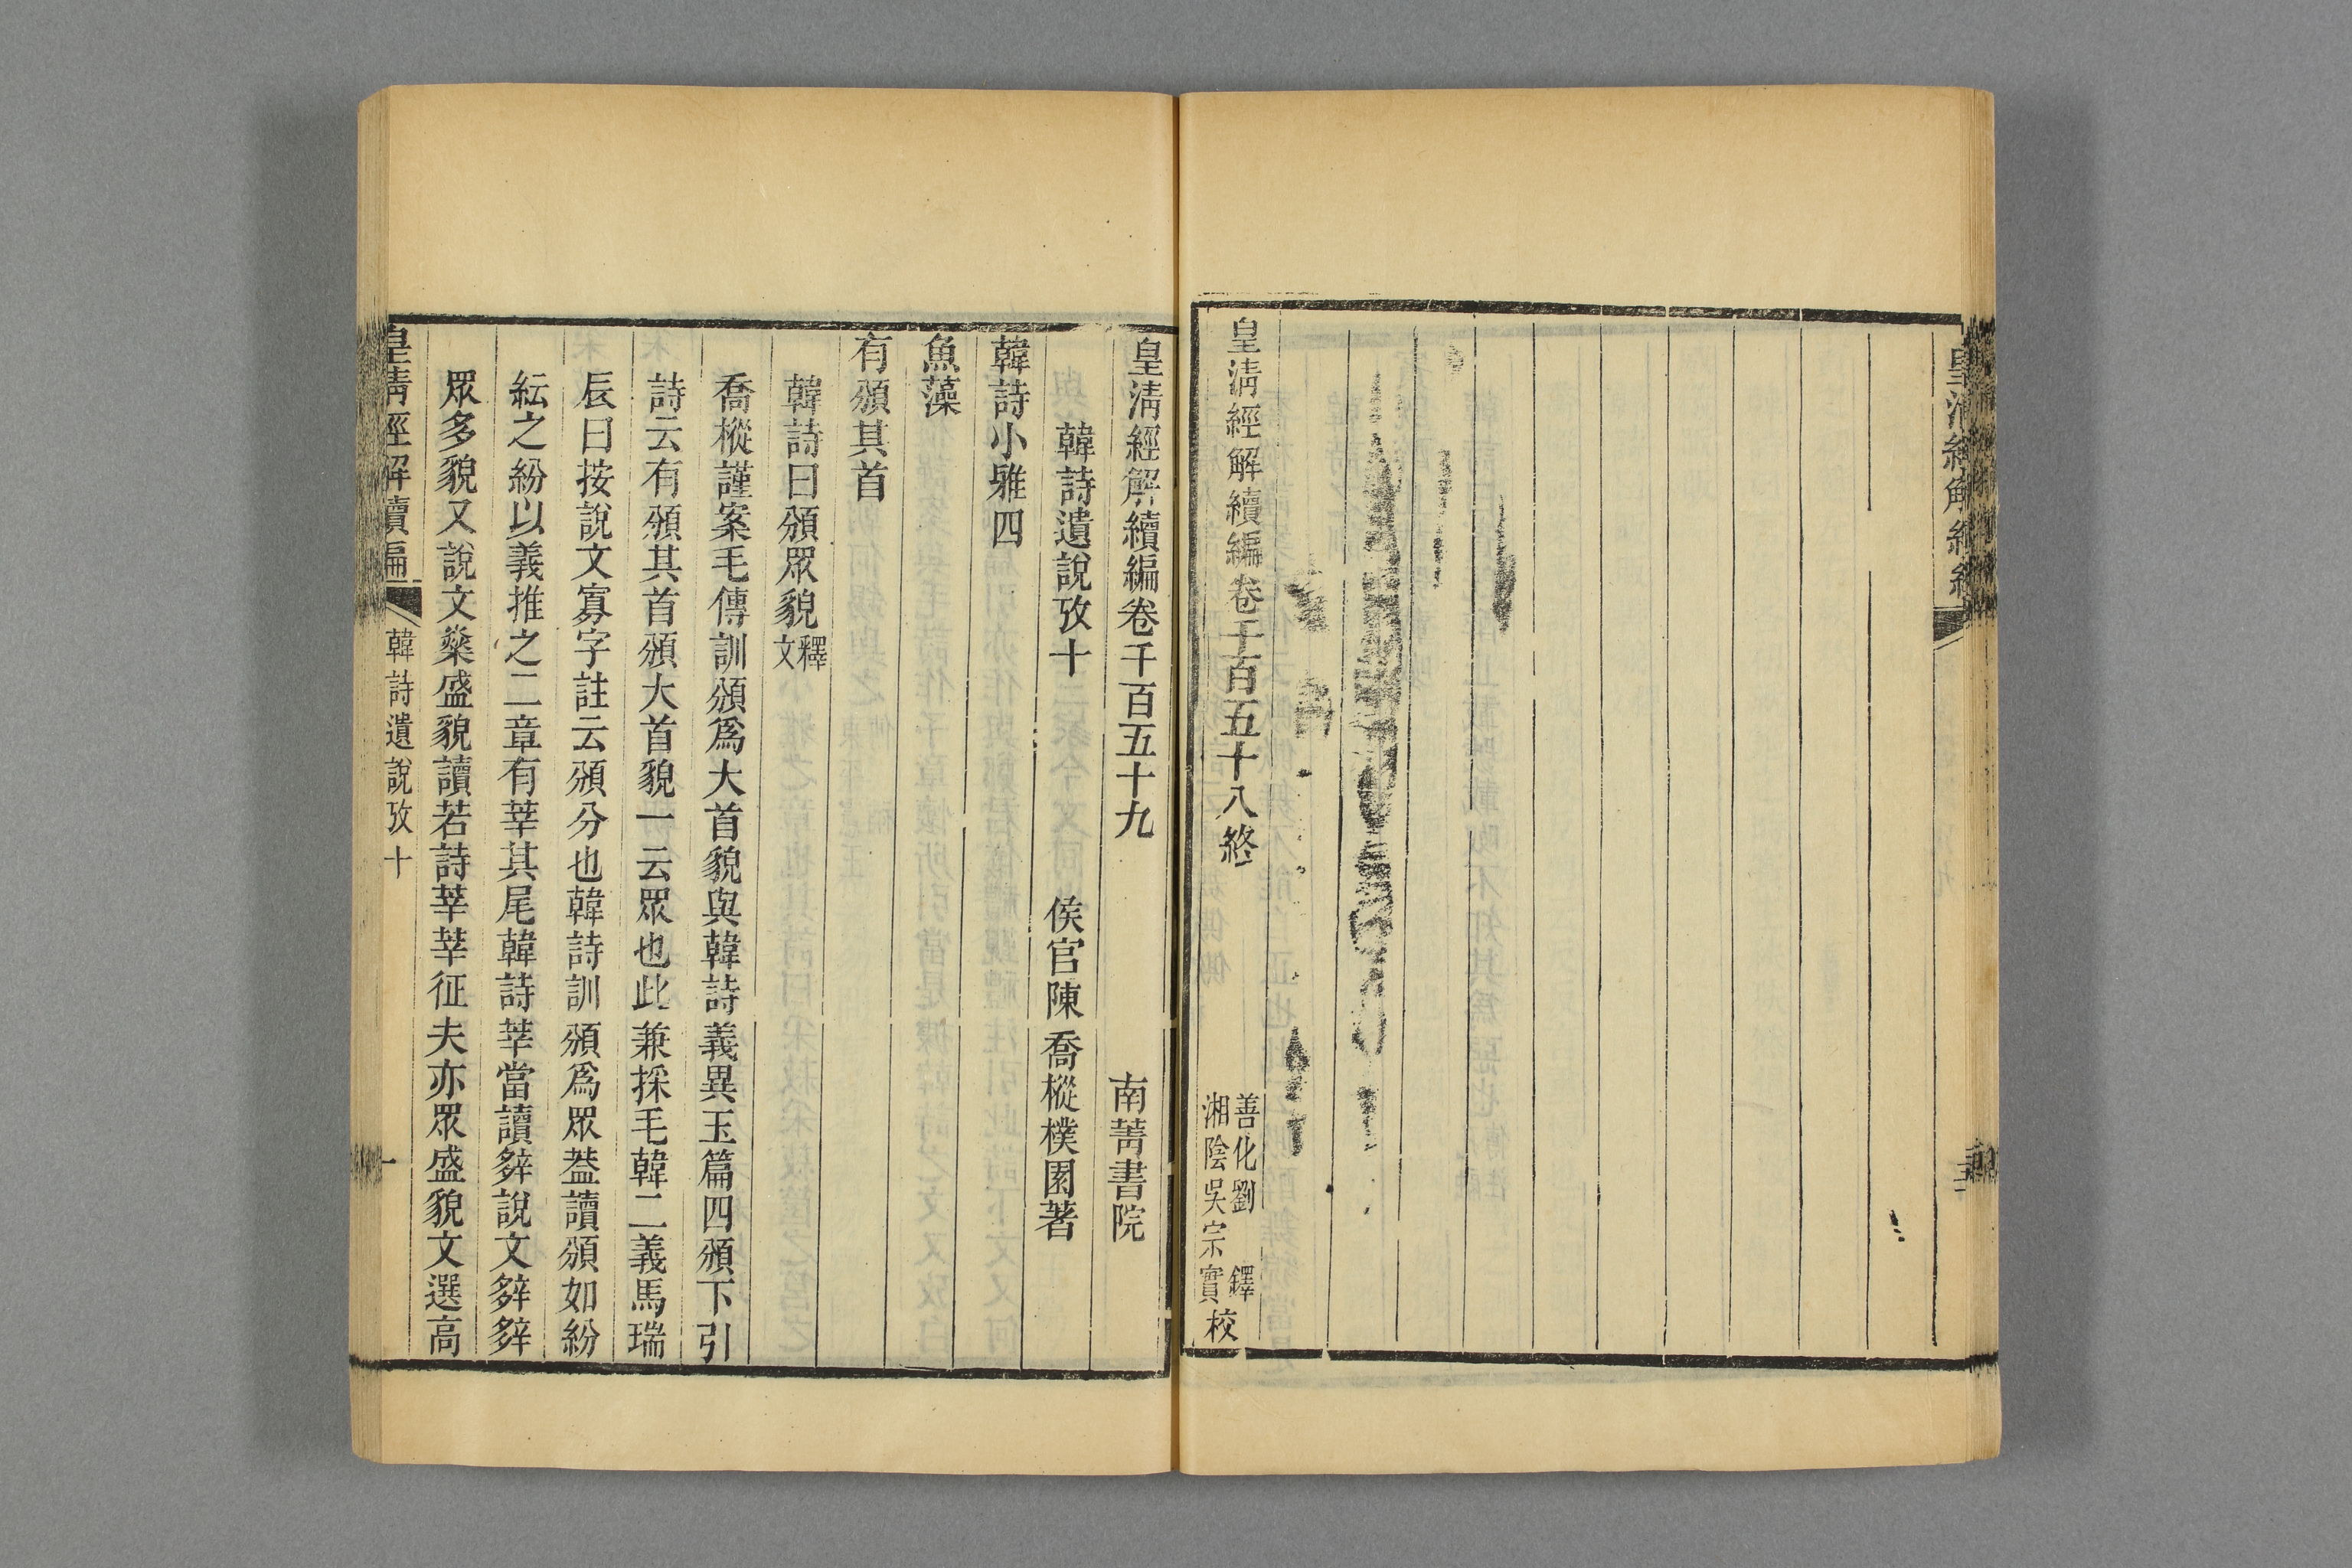 皇清經解續編卷千百五十八終
善化劉 鐸
湘陰吳宗實
校
皇淸經解續編卷千百五十九
南菁書院
韓詩遺說攷十
侯官陳喬樅樸園著
韓詩小雅四
魚藻
有頒其首
韓詩曰頒眾貌釋文
喬樅謹案毛傳訓頒爲大首貌與韓詩義異玉篇四頒下引
詩云有頒其首頒大首貌一云眾也此兼採毛韓二義馬瑞
辰曰按說文寡字註云頒分也韓詩訓頒爲眾葢讀頒如紛
紜之紛以義推之二章有莘其尾韓詩莘當讀㜪說文㜪㜪
眾多貌又說文燊盛貌讀若詩莘莘征夫亦眾盛貌文選高
皇淸經解續編
韓詩遺說攷十
一